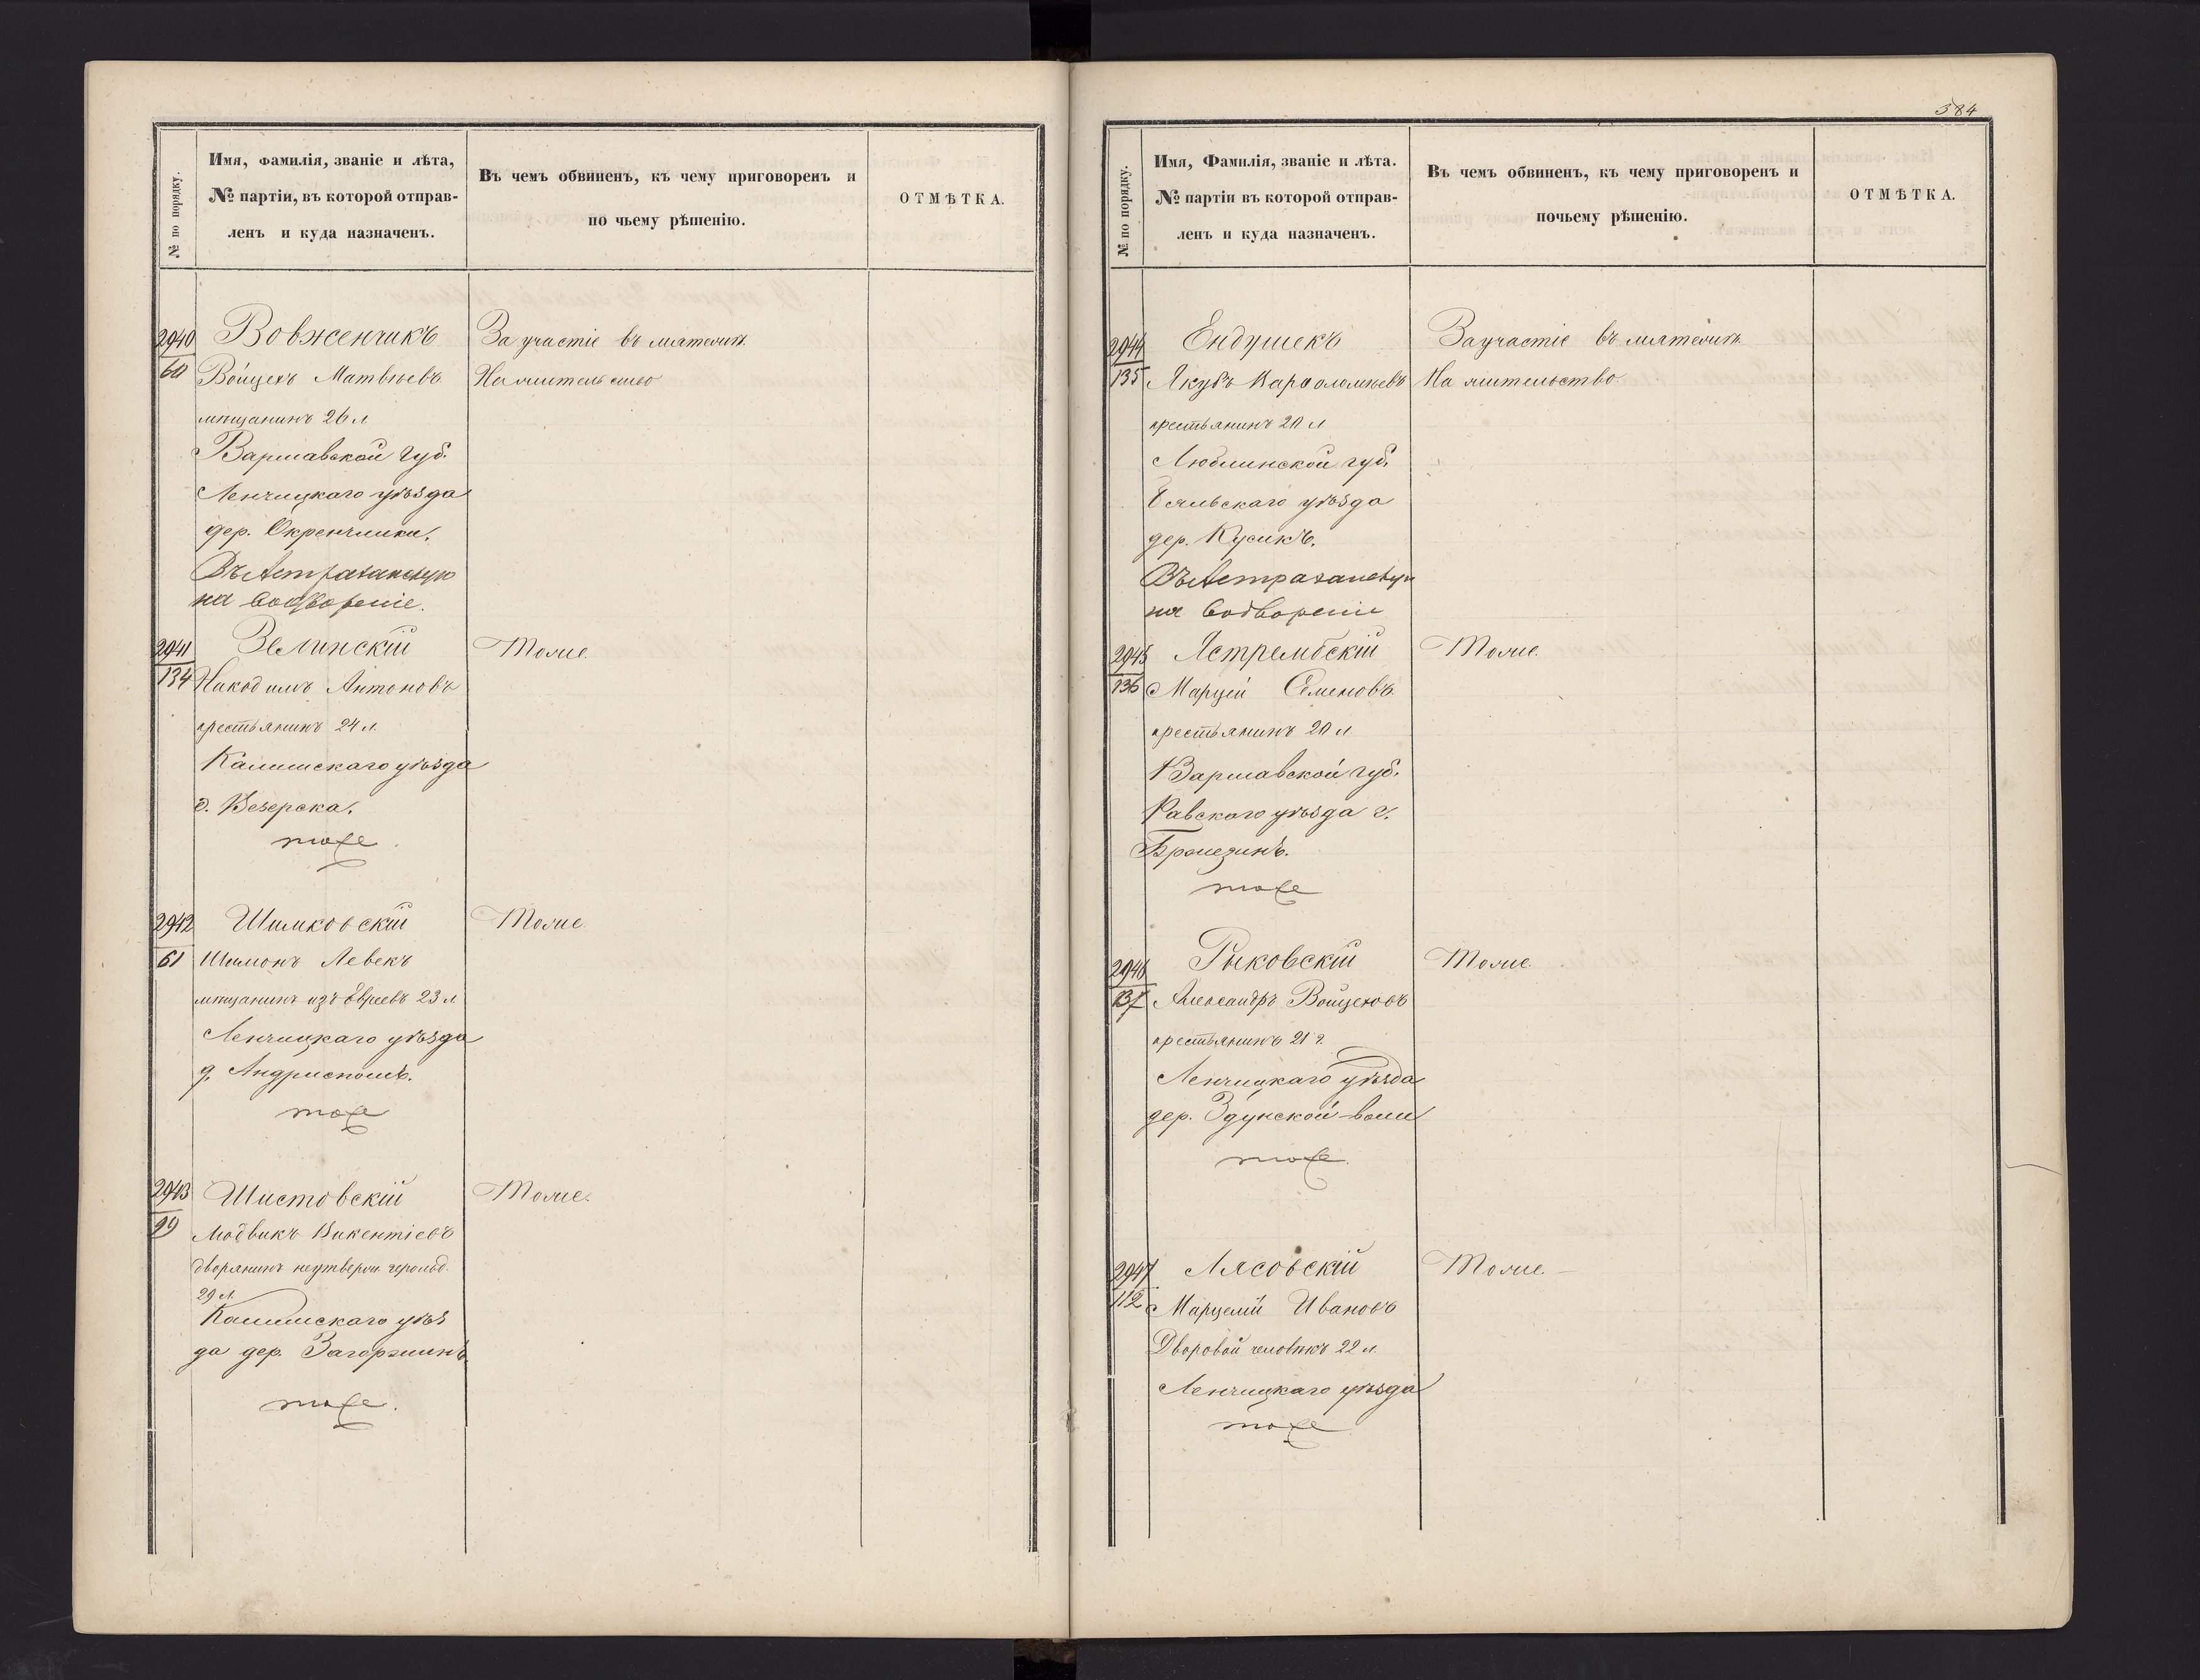 № по порядку.
Имя, Фамилія, званіе и лѣта,
№ партіи, въ которой отправ-
ленъ и куда назначенъ.
Въ чемъ обвиненъ, къ чему приговоренъ и
по чьему рѣшенію.
ОТМѢТКА.
2940
60
Вовженчикъ
Войцехъ Матвѣевъ
мѣщанинъ 26 л
Варшавской Губ.
Ленчицкаго уѣзда
дер.
Въ Астраханскую
на водвореніе.
За участіе въ мятежѣ.
На жительство
2941
134
Зелинскій
Никодимъ Антоновъ
крестьянинъ 24 л.
Калишскаго уѣзда
д. Везерска.
тоже
Тоже.
2942
61
Шимковскій
Шимонъ Левекъ
мѣщанинъ изъ Евреевъ 23 л
Ленчицкаго уѣзда
д. Андриспомъ.
тоже
Тоже
2943
29
Шистовскій
Людвикъ Викентіевъ
дворянинъ неутвержд. герольд.
29 л.
Калишскаго уѣз
да дер.
тоже.
Тоже.
584
№ по порядку.
Имя, Фамилія, званіе и лѣта.
№ партіи въ которой отправ-
ленъ и куда назначенъ.
Въ чемъ обвиненъ, къ чему приговоренъ и
почьему рѣшенію.
ОТМѢТКА.
2944
135
Ендушекъ
Якубъ Варфоломѣевъ
крестьянинъ 20 л
Люблинской губ.
уѣзда
дер. Кусикъ.
Въ Астраханскую
на водвореніе
За участіе въ мятежѣ
На жительство
2945
136
Ястрембскій
Марцей Семеновъ
крестьянинъ 20 л
Варшавской губ.
Равскаго уѣзда г.
тоже
Тоже.
2946
137
Рыковскій
Александръ Войцеховъ
крестьянинъ 21 г.
Ленчицкаго уѣзда
дер. Здунской-воли
тоже.
Тоже
2947
112
Лясовскій
Марцелій Ивановъ
Дворовой человѣкъ 22 л.
Ленчицкаго уѣзда
тоже
Тоже. –